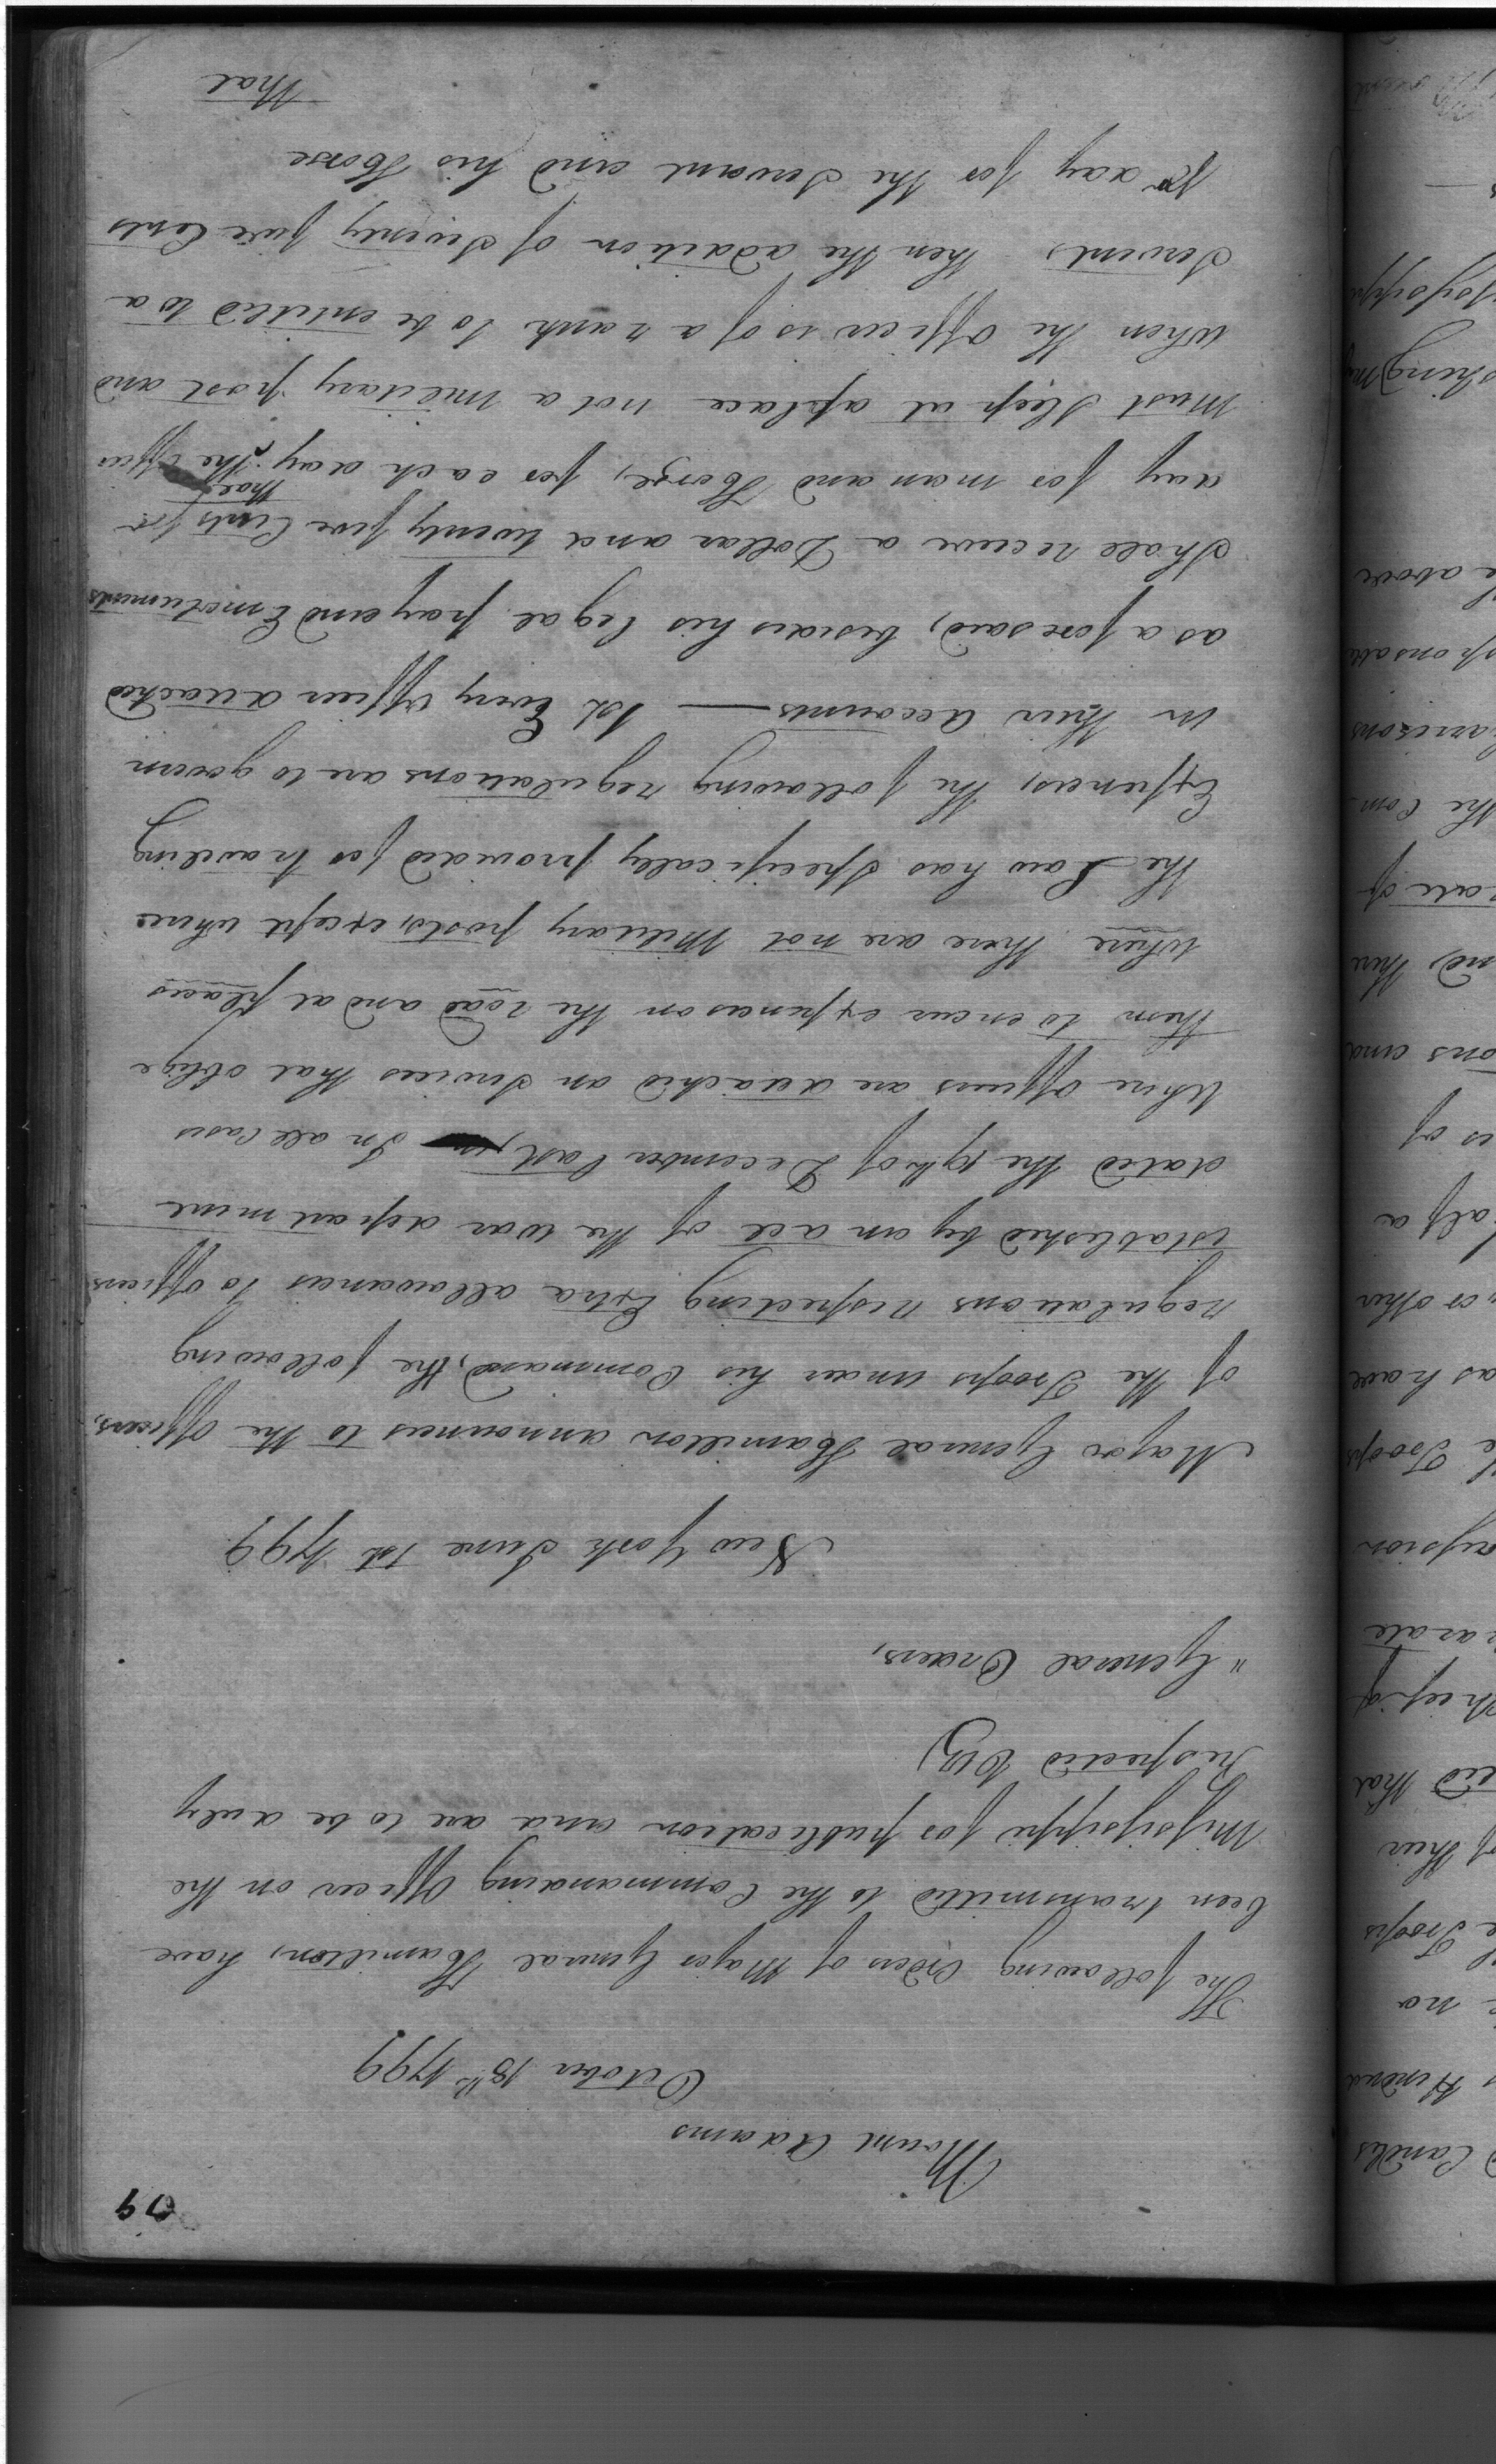 69
Mount Adams
October 18th 1799
The following Orders of Major General Hamilton, have
been transmitted to the Commanding Officer on the
Mississippi for publication and are to be duly
respected
"General Orders,
New York June 1st 1799
Major General Hamilton announces to the Officers,
of the Troops under his Command, the following
regulations respecting Extra allowances to officers
established by an act of the war department
dated the 19th of December last, In all Cases
Where officers are detached on Services that oblige
them to encur expences on the road and at places
where there are not Military posts, except where
the Law has specifically provided for traveling
Expences, the following regulations are to govern
in their Accounts — 1st Every Officer detached
as aforesaid, besides his legal pay and Emoluments
Shall receive a Dollar and twenty five Cents per
day for man and Horse, for each day that the officer
must Sleep at a place not a military post and
when the officer is of a rank to be entitled to a
Servent then the addition of Seventy five Cents
pr day for the Servant and his Horse
that
Candles
Hundred
no
the Troops
of their
that
arate
the Troops
as have
or other
half a
is of
ons and
there
rate of
the Com
arrisons
sponsable
above